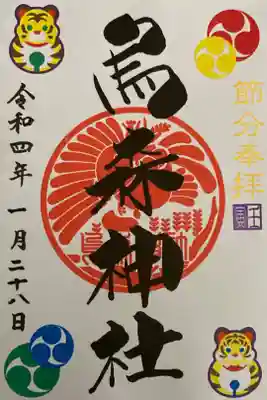 節分奉拝
烏森神社
令和四年 一月二十八日